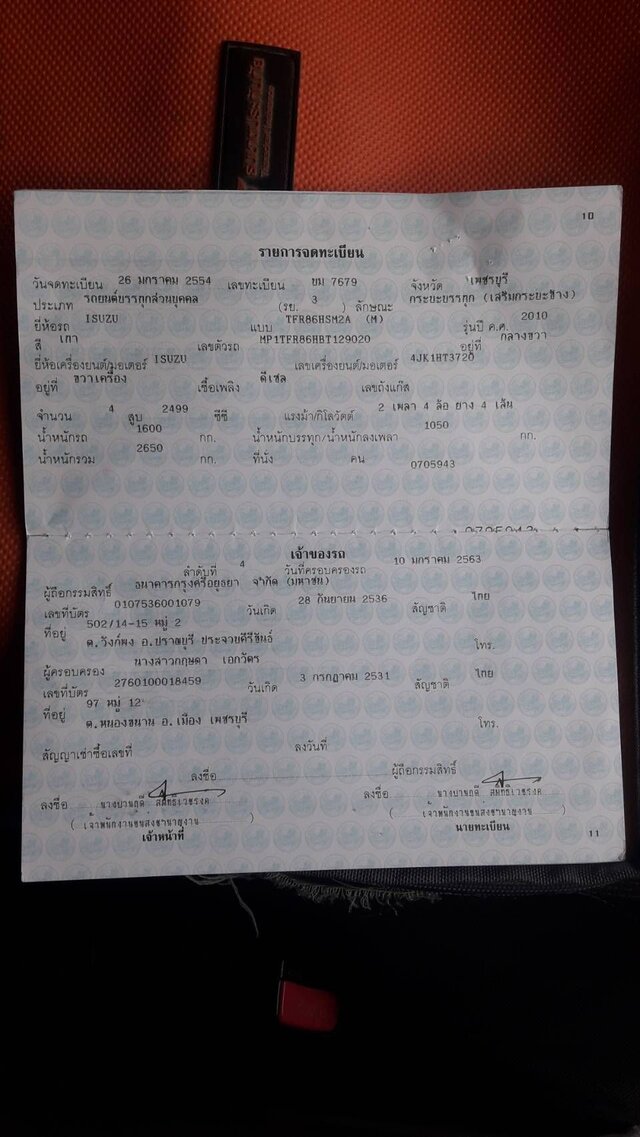 10
รายการจดทะเบียน
วันจดทะเบียน 26 มกราคม 2554 เลขทะเบียน ยม 7679 จังหวัด เพชรบุรี
ประเภท รถยนต์บรรทุกส่วนบุคคล (รย. 3 ) ลักษณะ กระบะบรรทุก (เสริมกระบะข้าง)
ยี่ห้อรถ ISUZU แบบ TFR86HSM2A (M) รุ่นปี ค.ศ. 2010
สี เทา เลขตัวรถ MP1TFR86HBT129020 อยู่ที่ กลางขวา
ยี่ห้อเครื่องยนต์/มอเตอร์ ISUZU เลขเครื่องยนต์/มอเตอร์ 4JK1HT3720
อยู่ที่ ขวาเครื่อง เชื้อเพลิง ดีเซล เลขถังแก๊ส
จำนวน 4 สูบ 2499 ซีซี แรงม้า/กิโลวัตต์ 2 เพลา 4 ล้อ ยาง 4 เส้น
น้ำหนักรถ 1600 กก. น้ำหนักบรรทุก/น้ำหนักลงเพลา 1050 กก.
น้ำหนักรวม 2650 กก. ที่นั่ง คน 0705943
เจ้าของรถ
ลำดับที่ 4 วันที่ครอบครองรถ 10 มกราคม 2563
ผู้ถือกรรมสิทธิ์ ธนาคารกรุงศรีอยุธยา จำกัด (มหาชน)
เลขที่บัตร 0107536001079 วันเกิด 28 กันยายน 2536 สัญชาติ ไทย
ที่อยู่ 502/14-15 หมู่ 2
ต.วังก์พง อ.ปราณบุรี ประจวบคีรีขันธ์ โทร.
ผู้ครอบครอง นางสาวกฤษดา เอกวัตร
เลขที่บัตร 2760100018459 วันเกิด 3 กรกฎาคม 2531 สัญชาติ ไทย
ที่อยู่ 97 หมู่ 12
ต.หนองขนาน อ.เมือง เพชรบุรี โทร.
สัญญาเช่าซื้อเลขที่ ลงวันที่
ลงชื่อ ผู้ถือกรรมสิทธิ์
ลงชื่อ ลงชื่อ
เจ้าหน้าที่ นายทะเบียน
11